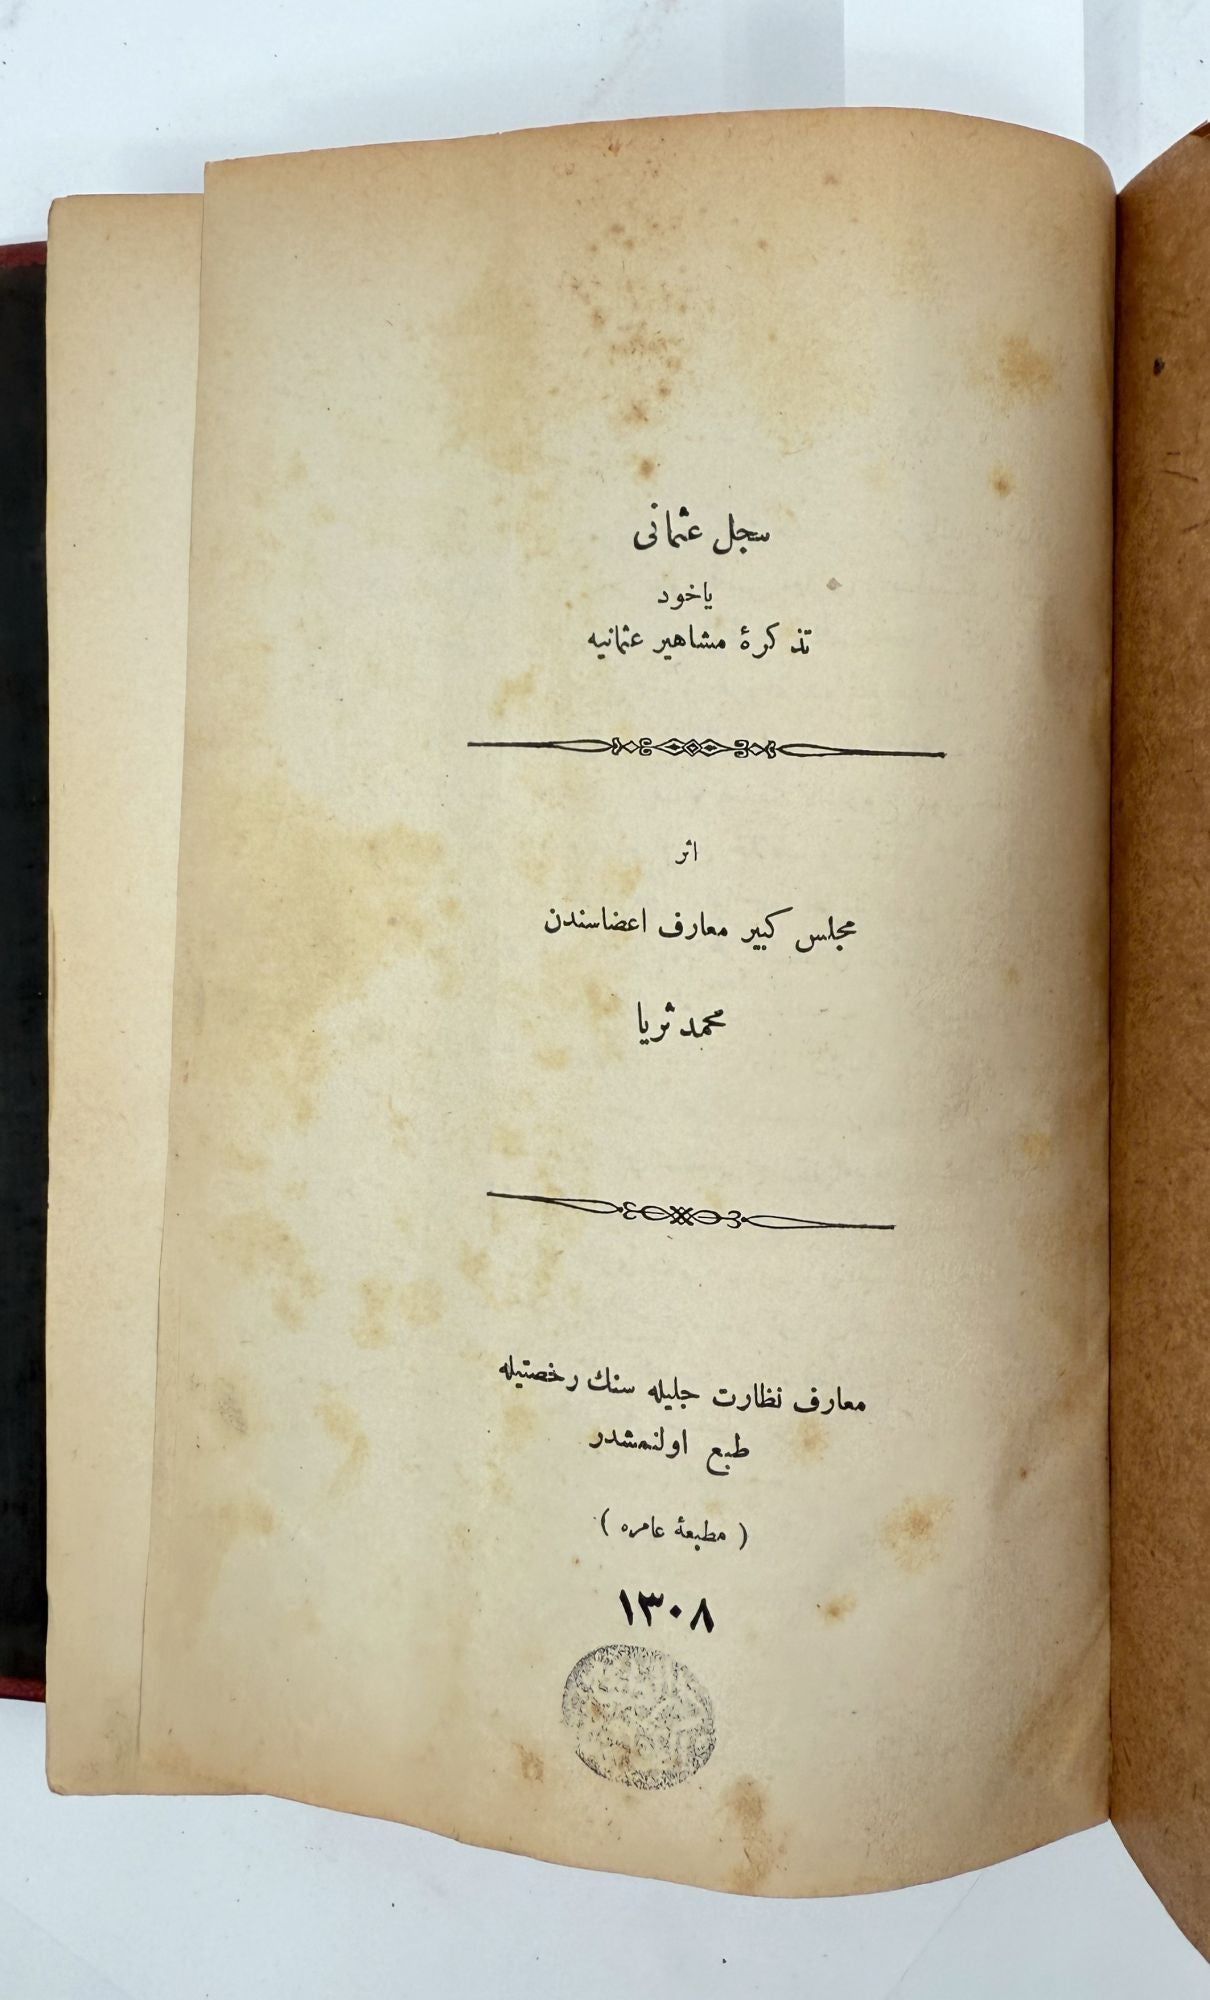 سجل عثمانی
یاخود
تذکرهٔ مشاهیر عثمانیه
اثر
مجلس کبیر معارف اعضاسندن
محمد ثریا
معارف نظارت جلیله سنك رخصتیله
طبع اولنمشدر
( مطبعهٔ عامره )
١٣٠٨